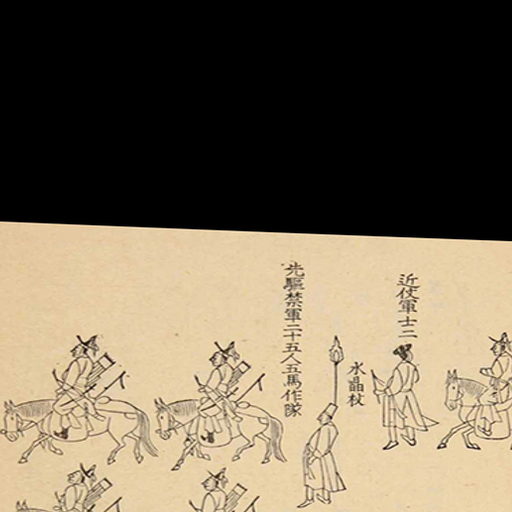 近仗軍士二
水晶杖
先驅禁軍二十五人五馬作隊